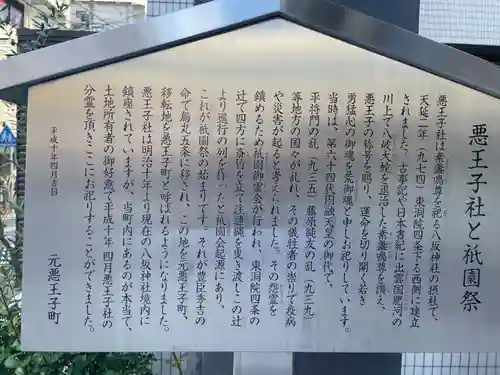 悪王子社と祇園祭
悪王子社は素盞嗚尊を祀る八坂神社の摂社で、
天延二年（九七四）東洞院四条下る西側に建立
されました。古事記や日本書紀に出雲国肥河の
川上で八岐大蛇を退治した素盞嗚尊を讃え、
悪王子の称号を賜り、運命を切り開く若き
勇猛心の御魂を荒御魂と申しお祀りしています。
当時は、第六十四代円融天皇の御代で、
平将門の乱（九三五）藤原純友の乱（九三九）
等地方の国々が乱れ、その犠牲者の祟りで疫病
や災害が起ると考えられました。その怨霊を
鎮めるため祇園御霊会が行われ、東洞院四条の
辻で四方に斎竹を立て注連縄を曳き渡しこの辻
より巡行の列を作ったと祇園会起源にあり、
これが祇園祭の始まりです。それが豊臣秀吉の
命で烏丸五条に移され、この地を元悪王子町、
移転地を悪王子町と呼ばれるようになりました。
悪王子社は明治十年より現在の八坂神社境内に
鎮座されていますが、当町内にあるのが本当で、
土地所有者の御好意で平成十年四月悪王子社の
分霊を頂きここにお祀りすることができました。
平成十年四月吉日
元悪王子町